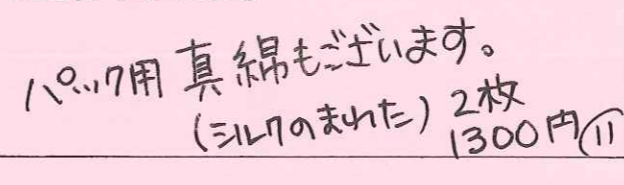 パック用 真綿もございます。
(シルクのまわた) 2枚
1300円⑪